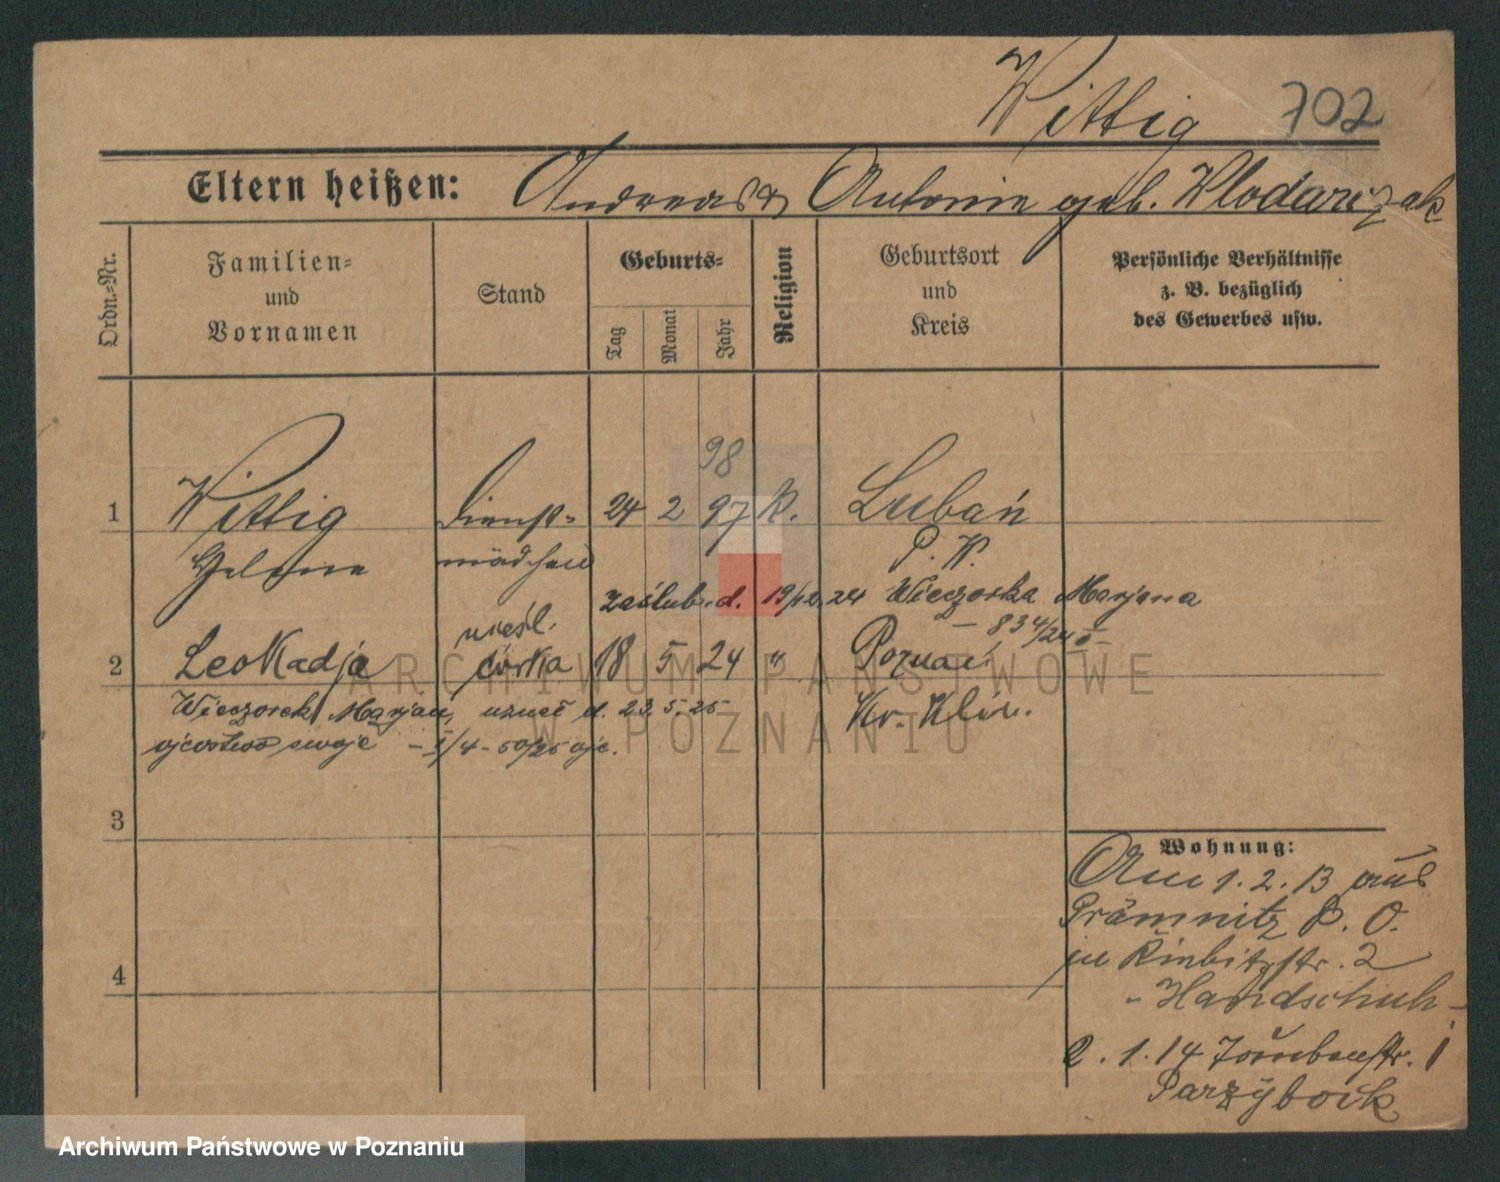 Wittig 702
Eltern heißen: Andreas & Antonie geb. Wlodarizak
Ordn.-Nr.
Familien-
und
Vornamen
Stand
Geburts-
Tag
Monat
Jahr
Religion
Geburtsort
und
Kreis
Persönliche Verhältnisse
z. B. bezüglich
des Gewerbes usw.
98
1 Wittig Dienst- 24 2 97 k. Lubań
Helene mädchen P. W.
zaślub. d. 19/12.24 Wieczorka Marjana
- 834/24
nieśl.
2 Leokadja córka 18 5 24 " Poznań
Wieczorek Marjan, uznał d. 23.5.25
ojcostwo swoje - I/4 - 50/25 ojc.
3
4
Wohnung:
Am 1.2.13 aus
Prämnitz P. O.
zu Rinbitzstr. 2
- Handschuh -
2.1.14
Parzybock
ARCHIWUM PAŃSTWOWE
W POZNANIU
Archiwum Państwowe w Poznaniu